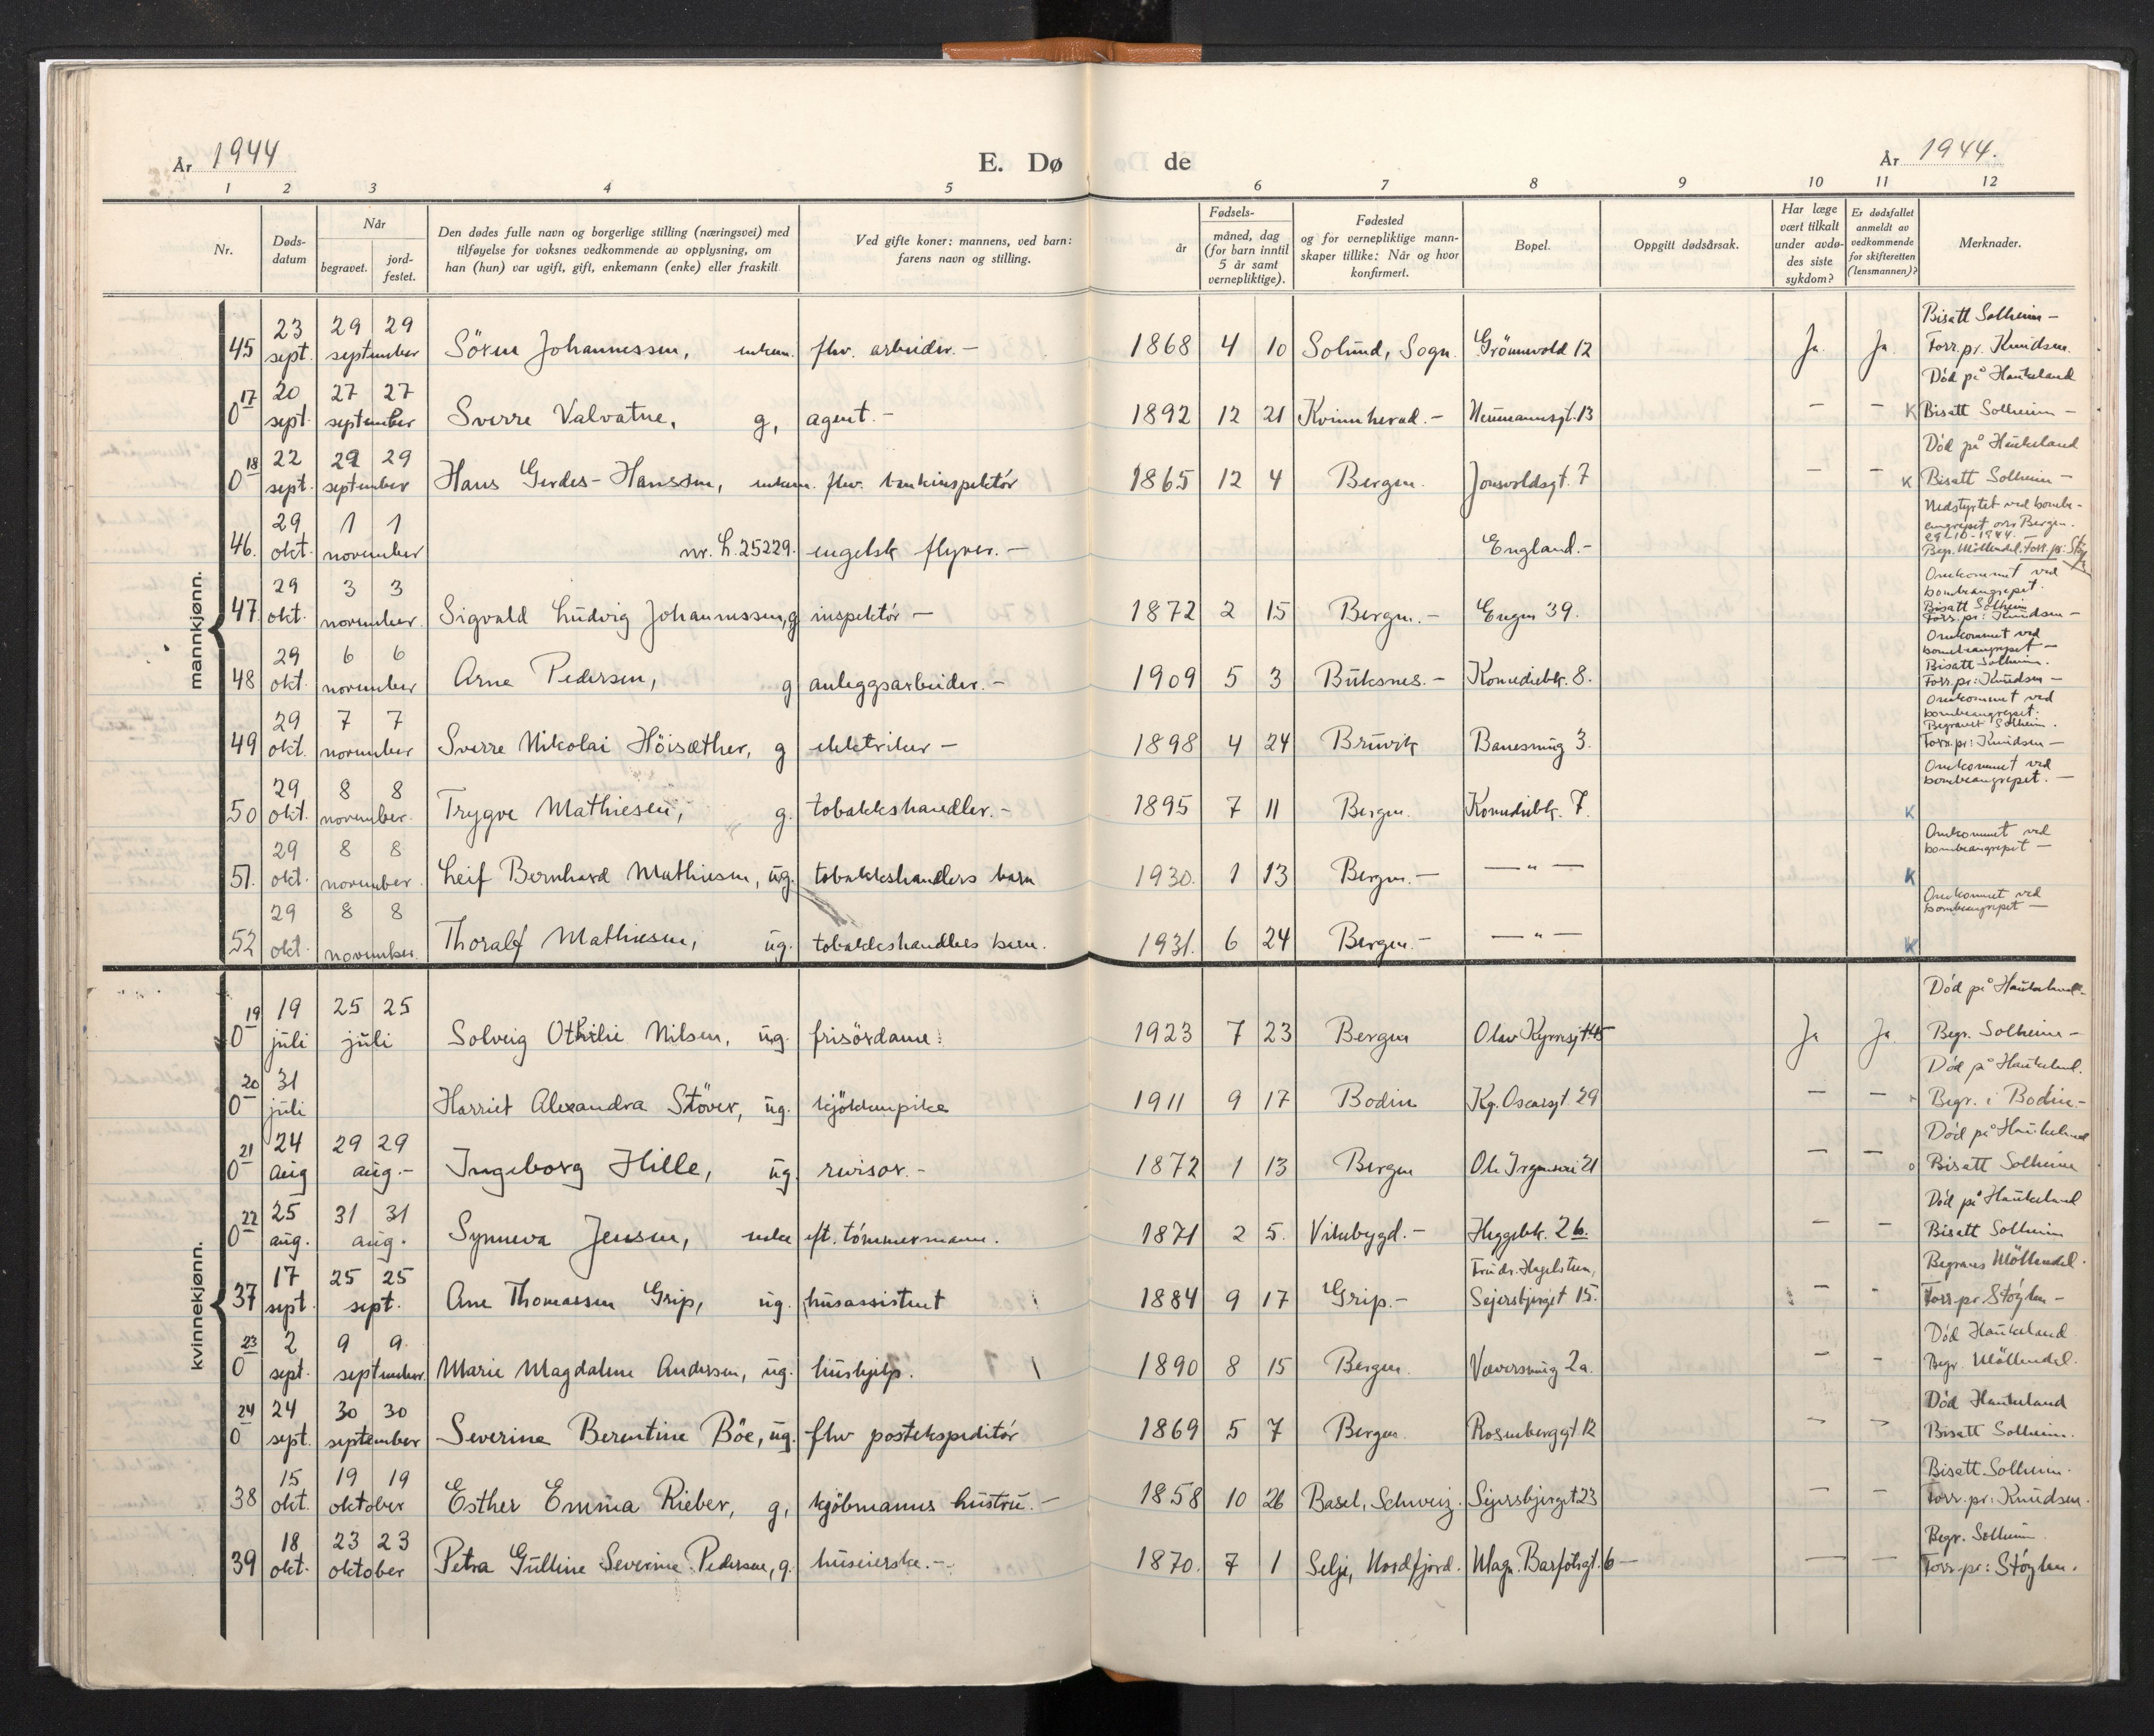 År 1944
E. Dø de
År 1944.
1 2 3 4 5 6 7 8 9 10 11 12
Nr.
Døds-
datum
Når
begravet.
jord-
festet.
Den dødes fulle navn og borgerlige stilling (næringsvei) med
tilføyelse for voksnes vedkommende av opplysning, om
han (hun) var ugift, gift, enkemann (enke) eller fraskilt
Ved gifte koner: mannens, ved barn:
farens navn og stilling.
Fødsels-
år
måned, dag
(for barn inntil
5 år samt
vernepliktige).
Fødested
og for vernepliktige mann-
skaper tillike: Når og hvor
konfirmert.
Bopel.
Oppgitt dødsårsak.
Har læge
vært tilkalt
under avdø-
des siste
sykdom?
Er dødsfallet
anmeldt av
vedkommende
for skifteretten
(lensmannen)?
Merknader.
mannkjønn.
23 29 29 Bisatt Solheim –
45 sept. september Sören Johannessen, enkem. fhv. arbeider. – 1868 4 10 Solund, Sogn. 12 Ja. Ja. Forr. pr. Knudsen.
17 20 27 27 Död på Haukeland
0 sept. september Sverre Valvatne, g, agent. – 1892 12 21 Kvinnherad. – Neumannsgt. 13 – – K Bisatt Solheim –
18 22 29 29 Död på Haukeland
0 sept. september Hans Gerdes-Hanssen, enkem. fhv. 1865 12 4 Bergen. Jonsvoldsgt. 7 – – K Bisatt Solheim –
29 1 1 Nedstyrtet ved bombe-
angrepet over Bergen.
29-10-1944. –
46. okt. november nr. L. 25229. engelsk flyver. – England. – Begr. Möllendal. Forr. pr: Stöylen
29 3 3 Omkommet ved
bombeangrepet.
Bisatt Solheim
47. okt. november. Sigvald Ludvig Johannessen, g inspektör – 1872 2 15 Bergen. – Engen 39. Forr. pr: Knudsen –
29 6 6 Omkommet ved
bombeangrepet –
Bisatt Solheim.
48 okt. november Arne Pedersen, g anleggsarbeider. – 1909 5 3 Buksnes. – Komediebk. 8. Forr. pr: Knudsen –
29 7 7 Omkommet ved
bombeangrepet.
Begravet Solheim.
49 okt. november Sverre Nikolai Höisæther, g elektriker – 1898 4 24 Bruvik 3. Forr. pr: Knudsen –
29 8 8 Omkommet ved
bombeangrepet. –
50 okt. november. Trygve Mathiesen, g. tobakkshandler. – 1895 7 11 Bergen. Komediebk. 7. K
29 8 8 Omkommet ved
bombeangrepet –
51. okt. november. Leif Bernhard Mathiesen, ug. tobakkshandlers barn 1930. 1 13 Bergen. – — " — K
29 8 8 Omkommet ved
bombeangrepet –
52 okt. november. Thoralf Mathiesen, ug. tobakkshandlers barn. 1931. 6 24 Bergen. – — " — K
kvinnekjønn.
19 19 25 25 Död på Haukeland.
0 juli juli Solveig Othilie Nilsen, ug. frisördame. 1923 7 23 Bergen Olav Kyrresgt 45 Ja Ja Begr. Solheim –
20 31 Död på Haukeland.
0 juli Harriet Alexandra Stöver, ug. kjökkenpike 1911 9 17 Bodin Kg. Oscarsgt. 29 – – Begr. i Bodin. –
21 24 29 29 Död på Haukeland
0 aug aug. – Ingeborg Hille, ug. revisor. – 1872 1 13 Bergen Ole Irgensvei 21 – – o Bisatt Solheim
22 25 31 31 Död på Haukeland
0 aug. aug. Synneva Jensen, enke eft. tömmermann. 1871 2 5. Vikebygd. – Heggebk. 26. – – Bisatt Solheim
17 25 25 Begraves Möllendal.
37 sept. sept. Ane Thomassen Grip, ug. husassistent 1884 9 17 Grip. – Sejersbjerget 15. – – Forr. pr Stöylen –
23 2 9 9. Död Haukeland
0 sept. september. Marie Magdalene Andersen, ug. hushjelp. 1890 8 15 Bergen. Væversmug 2a. – – Begr. Möllendal.
24 24 30 30 Död Haukeland
0 sept. september Severine Berentine Böe, ug. fhv postekspeditör 1869 5 7 Bergen. Rosenberggt. 12 – – Bisatt Solheim.
15 19 19 Bisatt Solheim.
38 okt. oktober Esther Emma Rieber, g, kjöbmanns hustru. – 1858 10 26 Basel, Schweiz. Sejersbjerget 23 – – Forr. pr: Knudsen.
18 23 23 Begr. Solheim
39 okt. oktober Petra Gulline Severine Pedersen, g. huseierske. – 1870. 7 1 Selje, Nordfjord. Magn. Barfötsgt. 6 – – – Forr. pr: Stöylen.